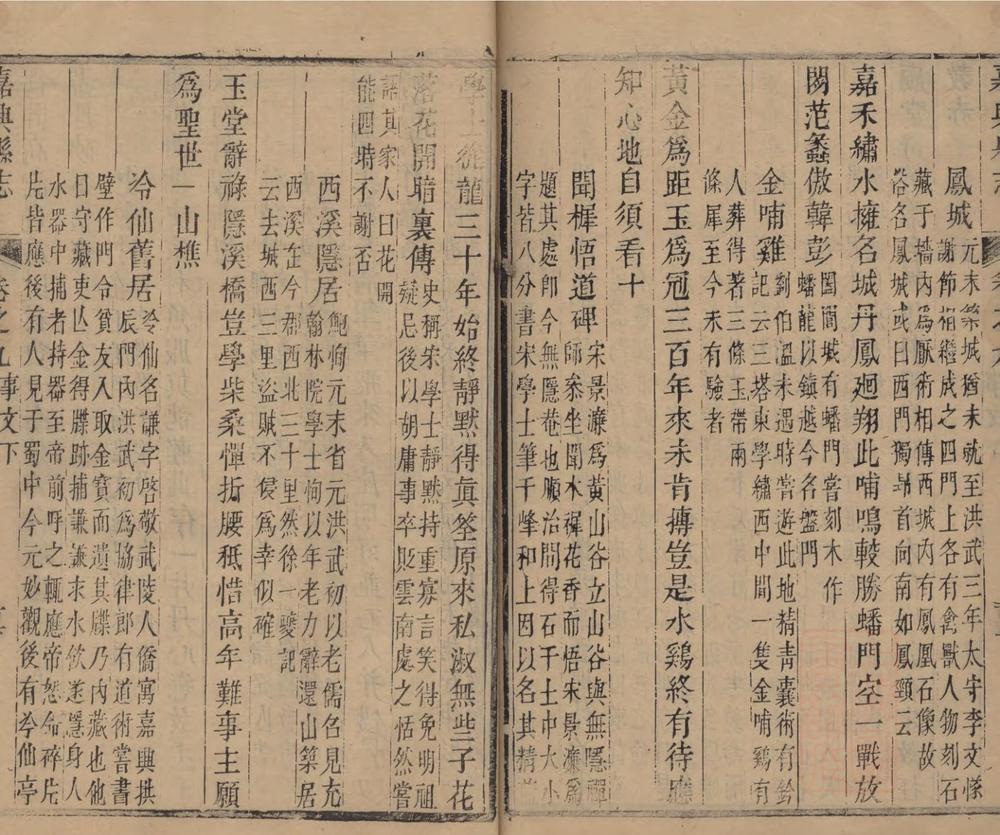 鳳城
元末築城猶未就至洪武三年太守李文條
謝節相繼成之四門上各有禽獸人物刻石
藏于墻內爲厭術相傳西城內有鳳凰石像故
俗名鳳城或曰西門獨昻首向南如鳳頸云
嘉禾繡水擁名城丹鳳廻翔此哺鳴較勝蟠門空一戰放
閼范蠡傲韓彭
闔閭城有蟠門嘗刻木作
蟠龍以鎮越今名盤門
金哺雞
劉伯溫未遇時嘗遊此地精靑囊術有鈐
記云三塔東學繡西中間一雙金哺鷄有
人葬得著三條玉帶兩
條犀至今未有驗者
黃金爲距玉爲冠三百年來未肯摶豈是水鷄終有待應
知心地自須看十
聞樨悟道碑
宋景濂爲黃山谷立山谷與無隱禪
師叅坐聞木樨花香而悟宋景濂爲
題其處卽今無隱菴也順治間得石于土中大小
字皆八分書宋學士筆千峰和上因以名其精
學士從龍三十年始終靜默得眞筌原來私淑無些子花
落花開暗裏傳
史稱宋學士靜默持重寡言笑得免明祖
疑忌後以胡庸事卒貶雲南處之恬然嘗
語其家人曰花開
能四時不謝否
西溪隱居
鮑恂元末省元洪武初以老儒召見充
翰林院學士恂以年老力辭還山築居
西溪在今郡西北三十里然徐一夔記
云去城西三里盜賊不侵爲幸似確
玉堂辭祿隱溪橋豈學柴桑憚折腰秪惜高年難事主願
爲聖世一山樵
冷仙舊居
冷仙名謙字啓敬武陵人僑寓嘉興拱
辰門內洪武初爲協律郎有道術嘗書
壁作門令貧友入取金寳而遺其牒乃內藏也他
日守藏吏以金得牒跡捕謙謙求水飮遂隱身人
水器中捕者持器至帝前呼之輒應帝怒命碎片
片皆應後有人見于蜀中今元妙觀後有冷仙亭
嘉興縣志
卷之九
事文下